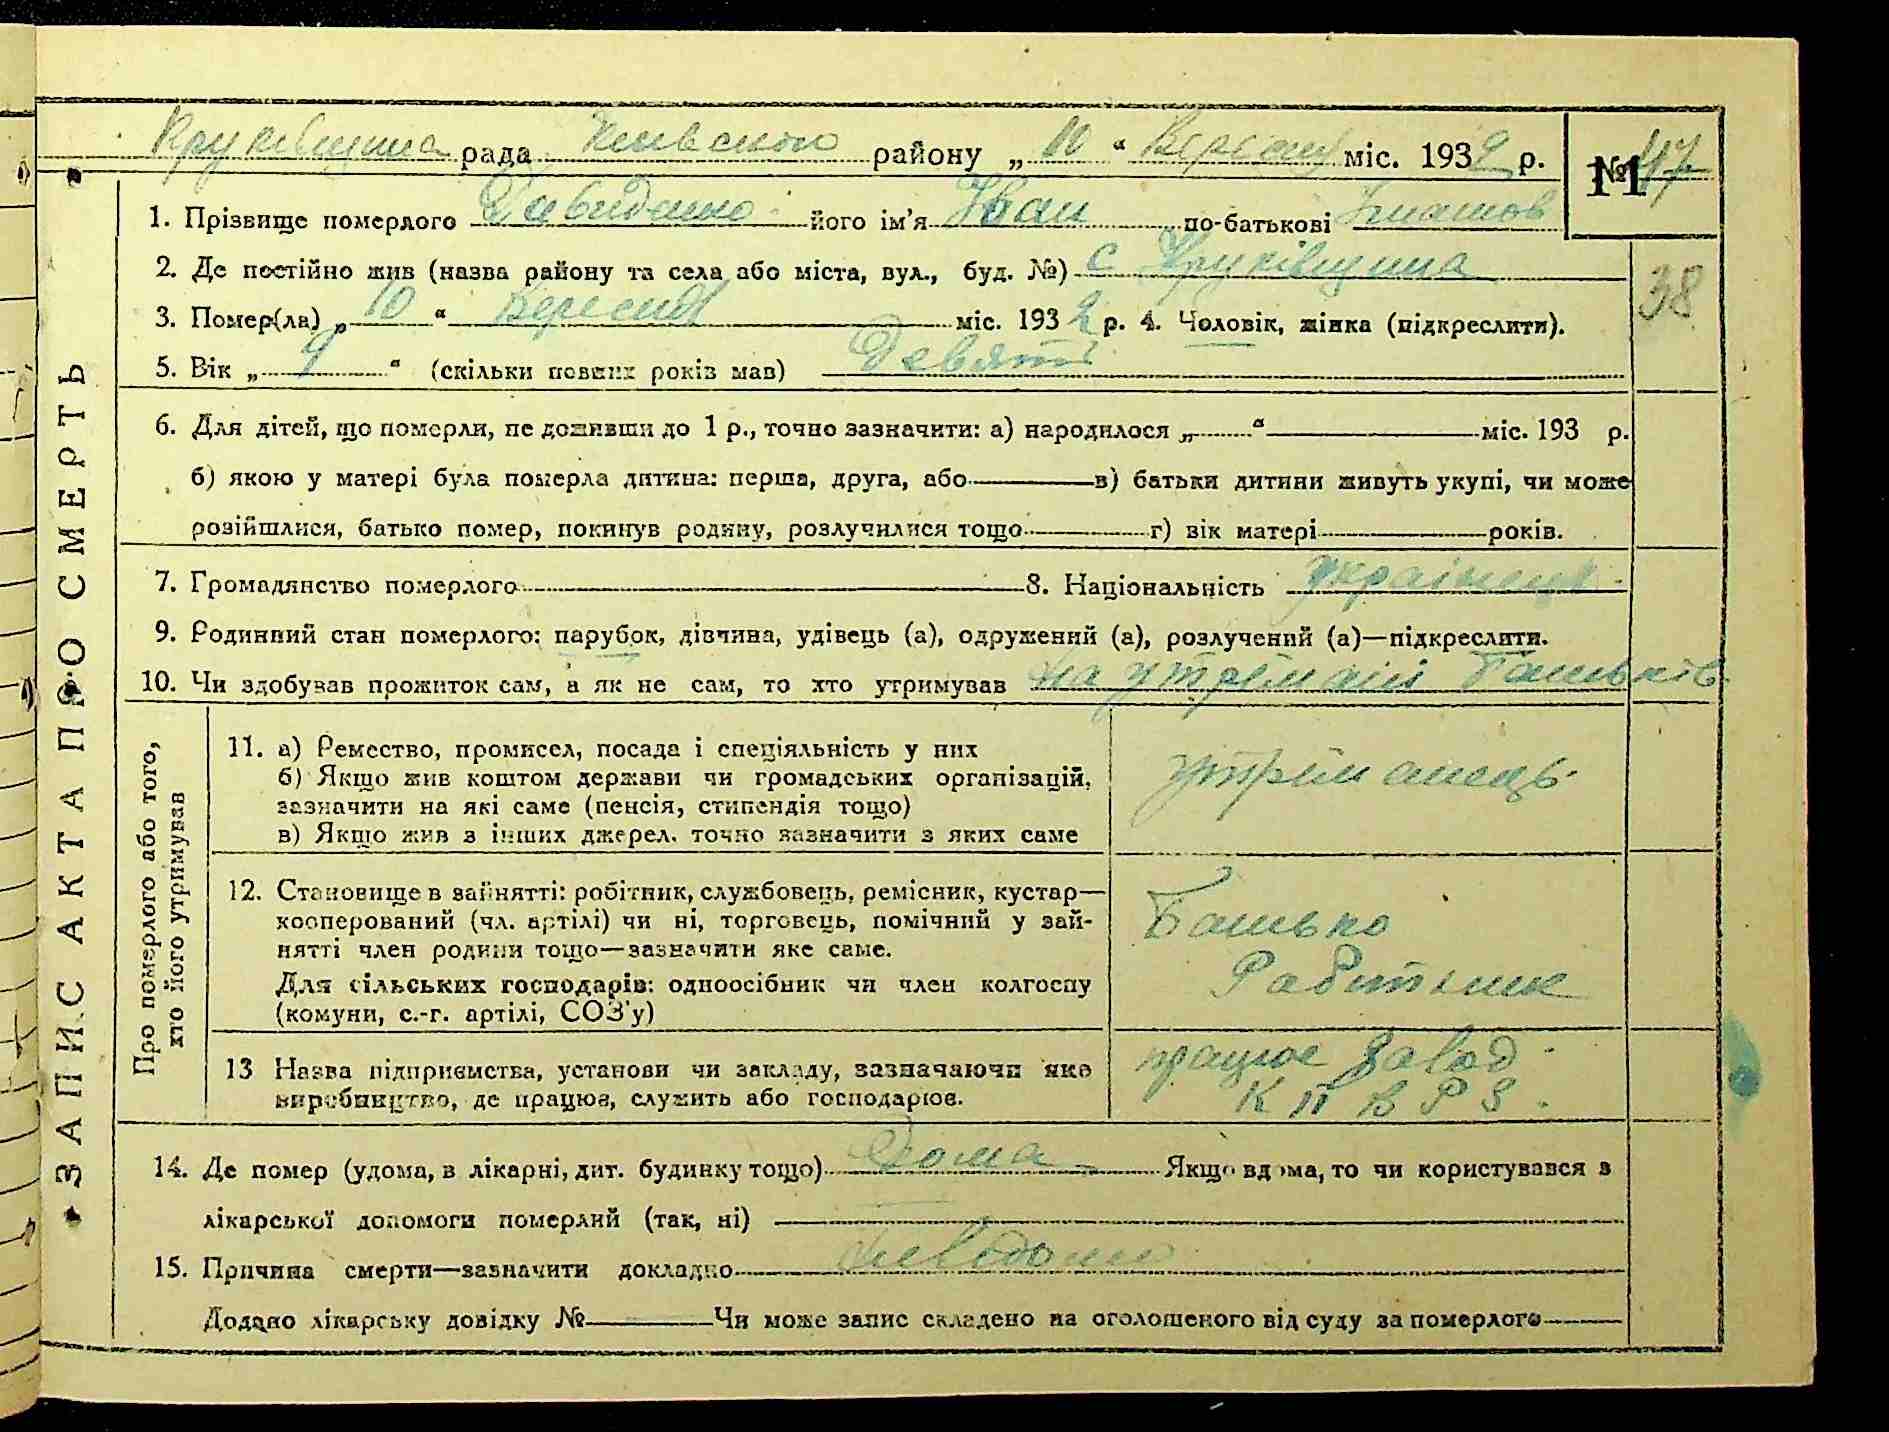 Круківщина рада Київського району „ 10 “ Вересня міс. 1932 р. № 47
11
1. Прізвище померлого Давиденко його ім'я Іван по-батькові Гнатов
2. Де постійно жив (назва району та села або міста, вул., буд. №) с Круківщина
38
3. Помер(ла) „ 10 “ Вересня міс. 1932 р. 4. Чоловік, жінка (підкреслити).
5. Вік „ 9 “ (скільки повних років мав) Девять
6. Для дітей, що померли, не доживши до 1 р., точно зазначити: а) народилося „ “ міс. 193 р.
б) якою у матері була померла дитина: перша, друга, або в) батьки дитини живуть укупі, чи може
розійшлися, батько помер, покинув родину, розлучилися тощо г) вік матері років.
7. Громадянство померлого 8. Національність українець
9. Родинний стан померлого: парубок, дівчина, удівець (а), одружений (а), розлучений (а)—підкреслити.
10. Чи здобував прожиток сам, а як не сам, то хто утримував на утрімані Батьків
ЗАПИС АКТА ПРО СМЕРТЬ
Про померлого або того,
хто його утримував
11. а) Ремество, промисел, посада і спеціяльність у них
б) Якщо жив коштом держави чи громадських організацій,
зазначити на які саме (пенсія, стипендія тощо)
в) Якщо жив з інших джерел, точно зазначити з яких саме
утріманець
12. Становище в зайнятті: робітник, службовець, ремісник, кустар—
кооперований (чл. артілі) чи ні, торговець, помічний у зай-
нятті член родини тощо—зазначити яке саме.
Для сільських господарів: одноосібник чи член колгоспу
(комуни, с.-г. артілі, СОЗ'у)
Батько
Работник
13 Назва підприємства, установи чи закладу, зазначаючи яке
виробництво, де працює, служить або господарює.
працює Завод
К П В Р З.
14. Де помер (удома, в лікарні, дит. будинку тощо) Дома Якщо вдома, то чи користувався з
лікарської допомоги померлий (так, ні)
15. Причина смерти—зазначити докладно невідомо
Додано лікарську довідку № Чи може запис складено на оголошеного від суду за померлого